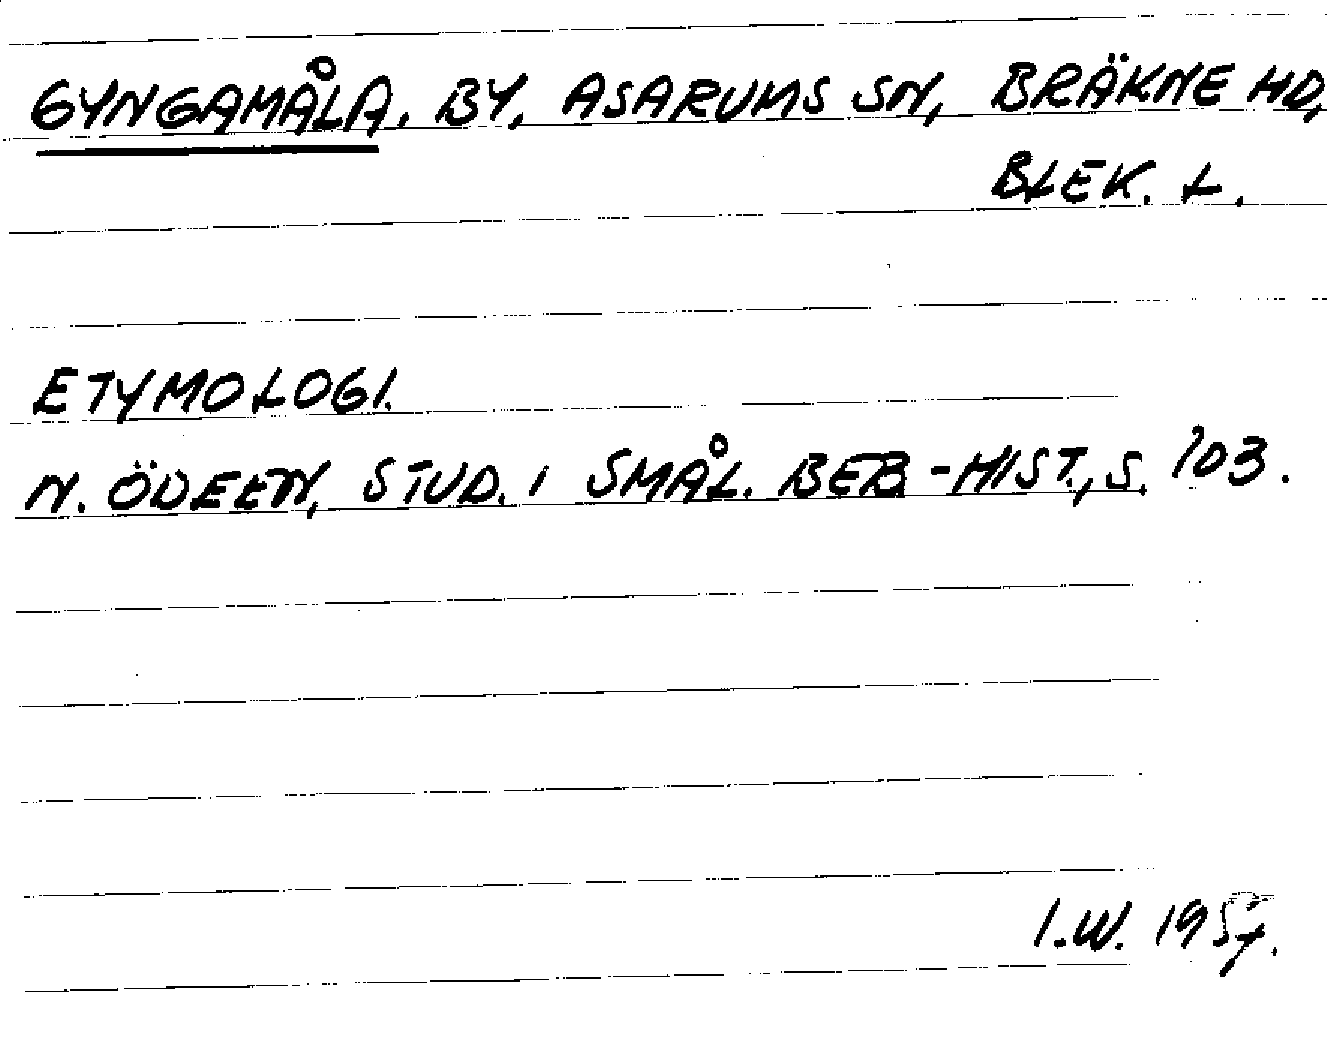 GYNGAMÅLA. BY, ASARUMS SN, BRÄKNE HD,
BLEK. L.
ETYMOLOGI.
N. ÖDEEN, STUD. I SMÅL. BEB-HIST., S. 103.
I.W. 1957.